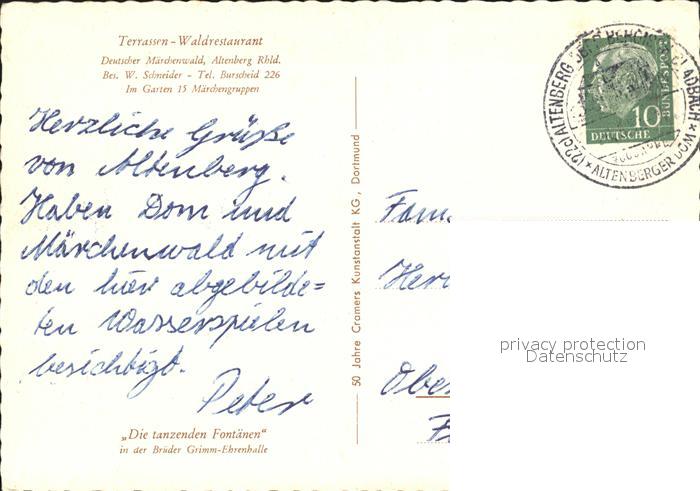 Terrassen-Waldrestaurant
Deutscher Märchenwald, Altenberg Rhld.
Bes. W. Schneider - Tel. Burscheid 226
Im Garten 15 Märchengruppen
Herzliche Grüße
von Altenberg.
Haben Dom und
Märchenwald mit
den hier abgebilde=
ten Wasserspielen
besichtigt.
Peter
„Die tanzenden Fontänen"
in der Brüder Grimm-Ehrenhalle
50 Jahre Cramers Kunstanstalt KG., Dortmund
(22c) ALTENBERG ÜBER BERGISCH GLADBACH
* ALTENBERGER DOM *
10
DEUTSCHE
BUNDESPOST
Fam
Her
Ober
privacy protection
Datenschutz